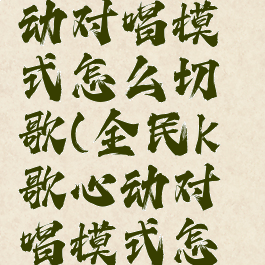 动对唱模
式怎么切
歌(全民k
歌心动对
唱模式怎